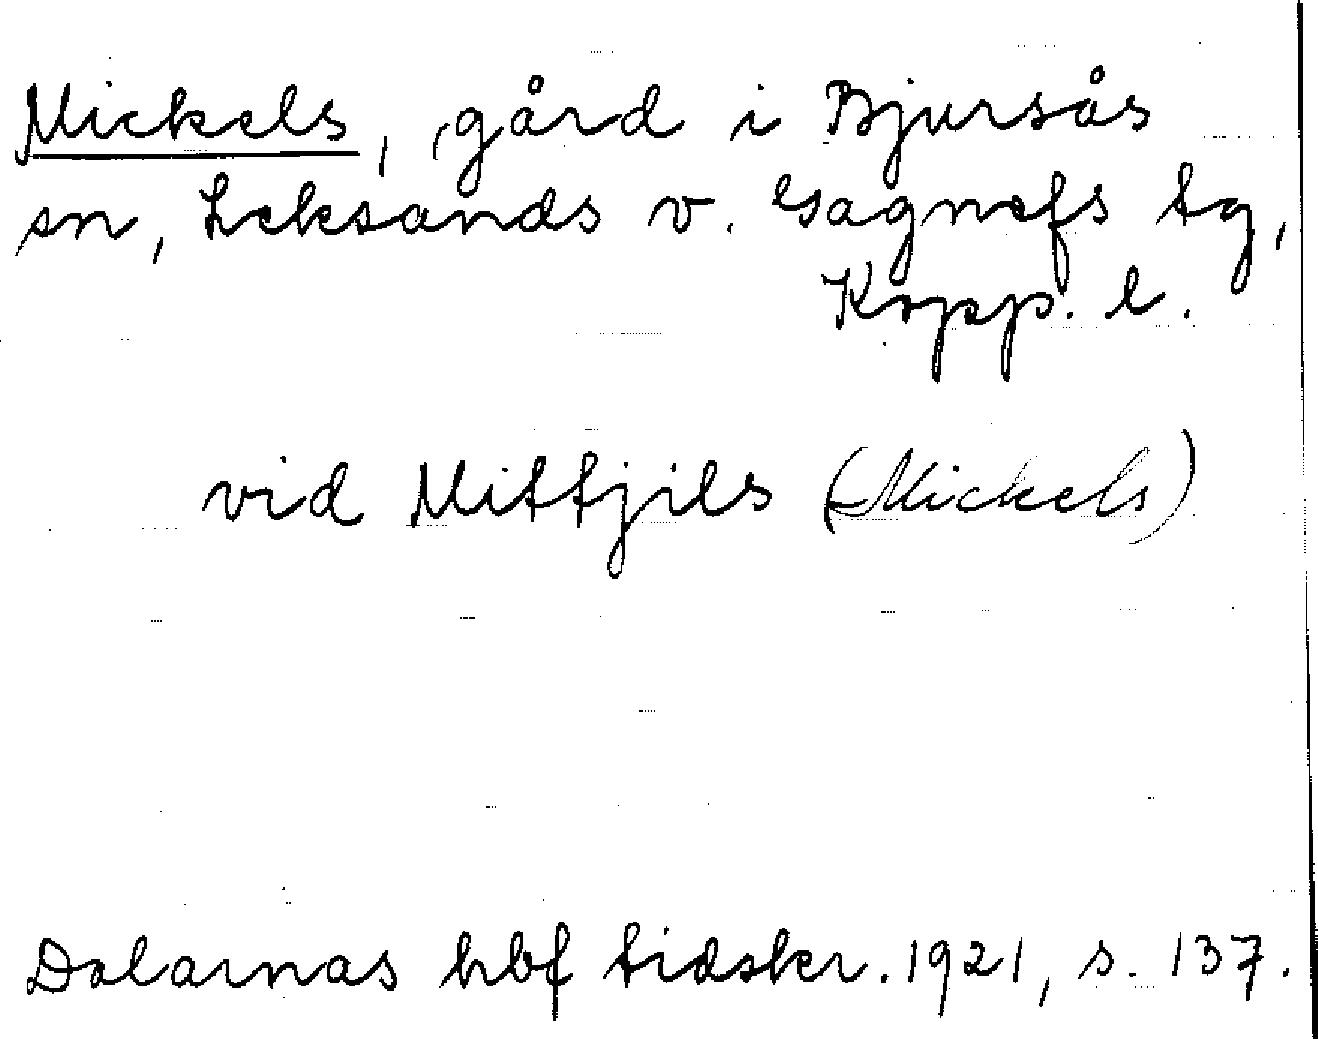 Mickels, gård i Bjursås
sn, Leksands v. Gagnefs tg,
Kopp. l.
vid Mittjils (Mickels)
Dalarnas hbf tidskr. 1921, s. 137.